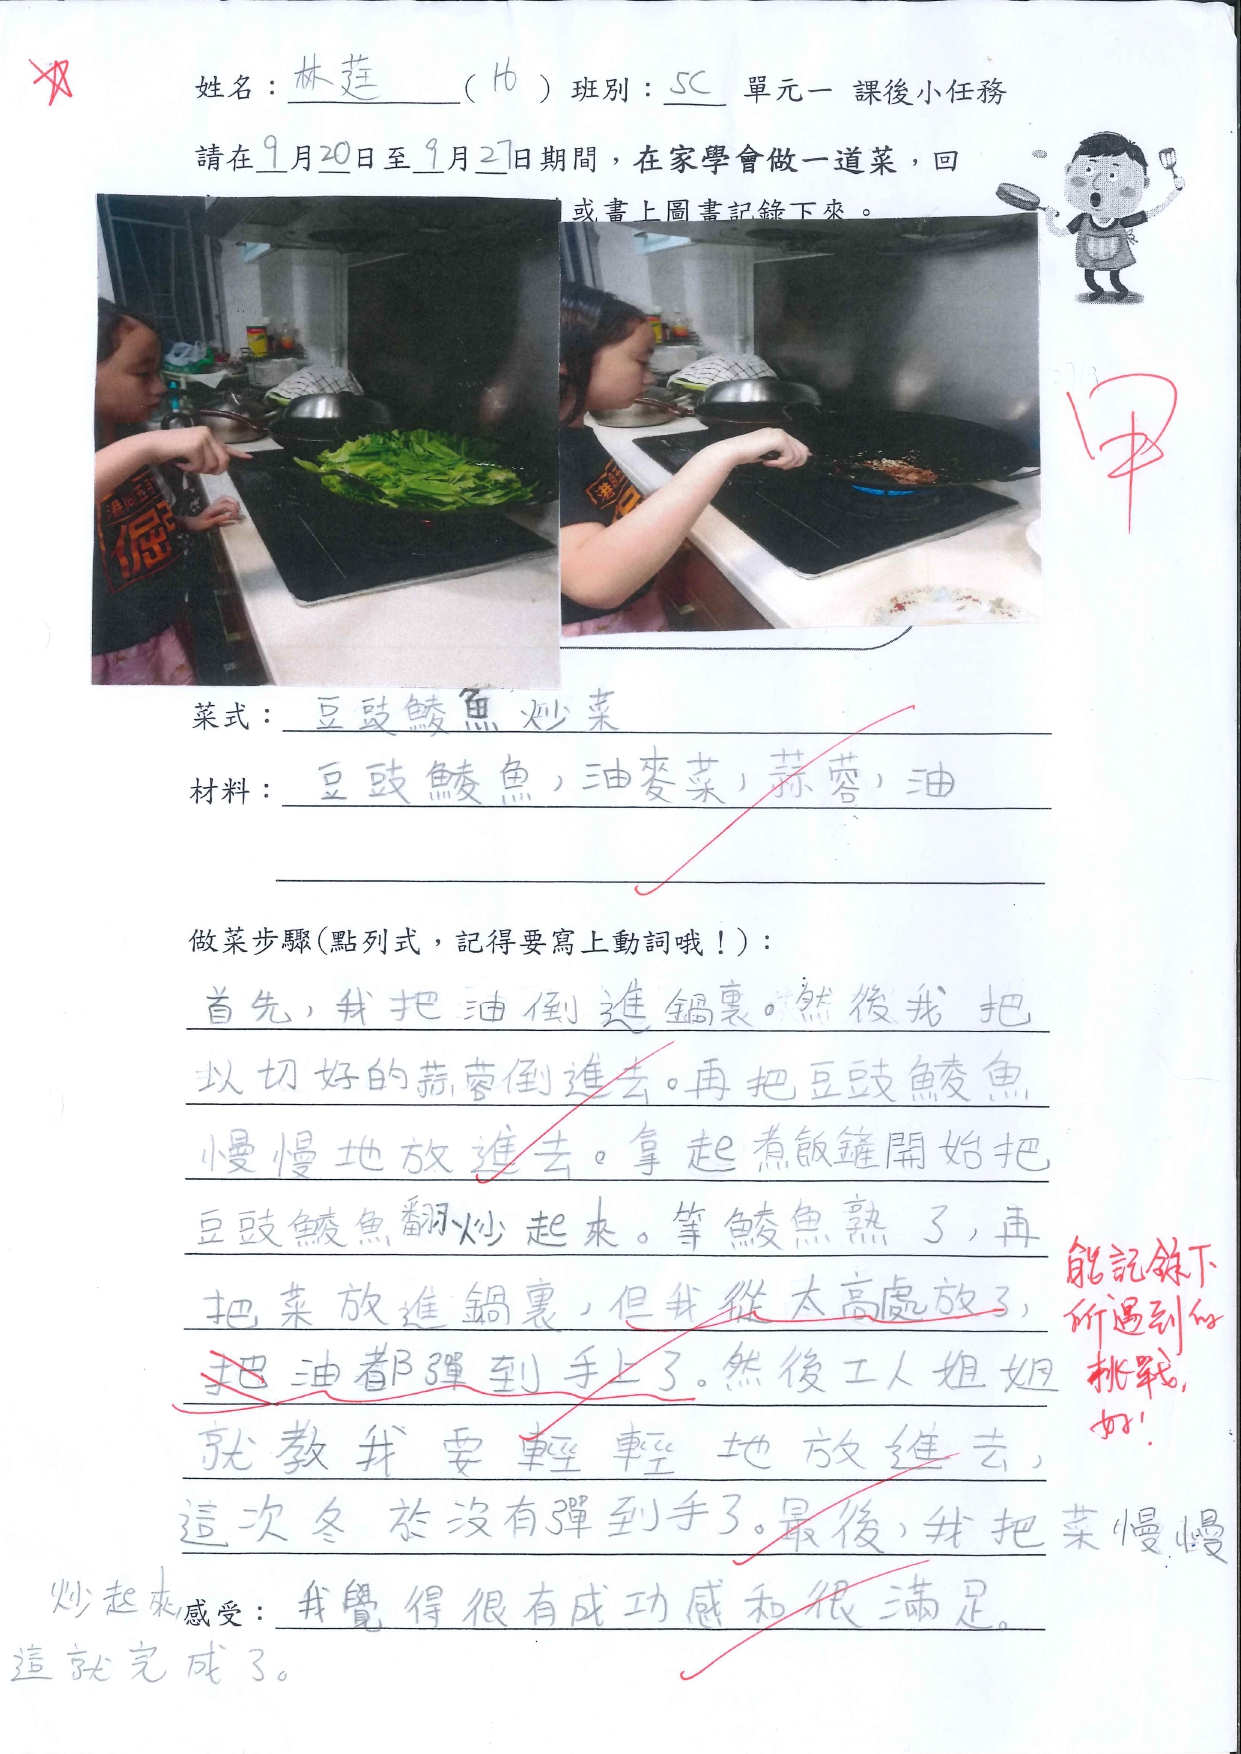 姓名：林莛（16）班別：5C 單元一 課後小任務
請在9月20日至9月27日期間，在家學會做一道菜，回
或畫上圖畫記錄下來。
甲
菜式：豆豉鯪魚炒菜
材料：豆豉鯪魚，油麥菜，蒜蓉，油
做菜步驟(點列式，記得要寫上動詞哦！)：
首先，我把油倒進鍋裏。然後我把
以切好的蒜蓉倒進去。再把豆豉鯪魚
慢慢地放進去。拿起煮飯鏟開始把
豆豉鯪魚翻炒起來。等鯪魚熟了，再
把菜放進鍋裏，但我從太高處放了，
把油都彈到手上了。然後工人姐姐
就教我要輕輕地放進去，
這次冬於沒有彈到手了。最後，我把菜慢慢
炒起來，
這就完成了。
感受：我覺得很有成功感和很滿足。
能記錄下
所遇到的
挑戰，
好！